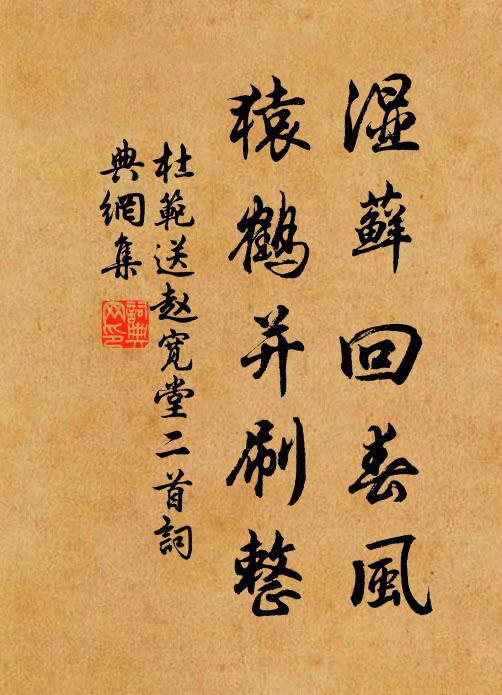 湿蘚回春風
猿鶴并刷整
杜範送赵寛堂二首詞
典網集
詞典
网印